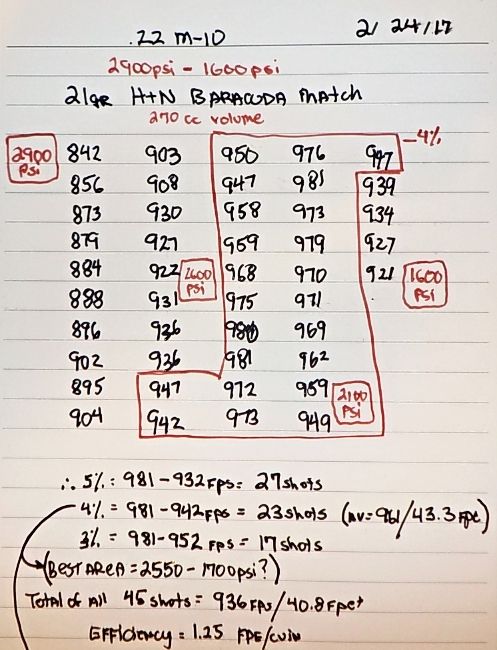 .22 M-10 2/24/17
2900psi - 1600psi
21gr H+N BARACUDA MATCH
270 cc volume
2900 PSI 842 903 950 976 947 -4%
856 908 947 981 939
873 930 958 973 934
879 927 959 979 927
884 922 2600 PSI 968 970 921 1600 PSI
888 931 975 971
896 936 980 969
902 936 981 962
895 947 972 959 2100 PSI
904 942 973 949
∴ 5%: 981-932FPS = 27shots
4% = 981-942FPS = 23shots (AV=961/43.3 FPE)
3% = 981-952 FPS = 17shots
(BEST AREA = 2550-1700psi?)
Total of All 45 shots = 936 FPS/40.8 FPE+
EFFiciency = 1.25 FPE/cuin